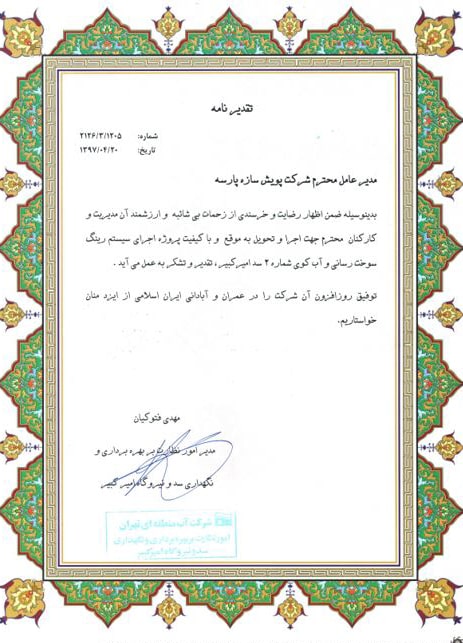 تقدیر نامه
شماره: ۲۱۲۶/۳/۱۲۰۵
تاریخ: ۱۳۹۷/۰۴/۲۰
مدیر عامل محترم شرکت پویش سازه پارسه
بدینوسیله ضمن اظهار رضایت و خرسندی از زحمات بی شائبه و ارزشمند آن مدیریت و
کارکنان محترم جهت اجرا و تحویل به موقع و با کیفیت پروژه اجرای سیستم رینگ
سوخت رسانی و آب کوی شماره ۲ سد امیرکبیر، تقدیر و تشکر به عمل می آید.
توفیق روزافزون آن شرکت را در عمران و آبادانی ایران اسلامی از ایزد منان
خواستاریم.
مهدی فتوکیان
مدیر امور نظارت بر بهره برداری و
نگهداری سد و نیروگاه امیر کبیر
شرکت آب منطقه ای تهران
امور نظارت بر بهره برداری و نگهداری
سد و نیروگاه امیرکبیر